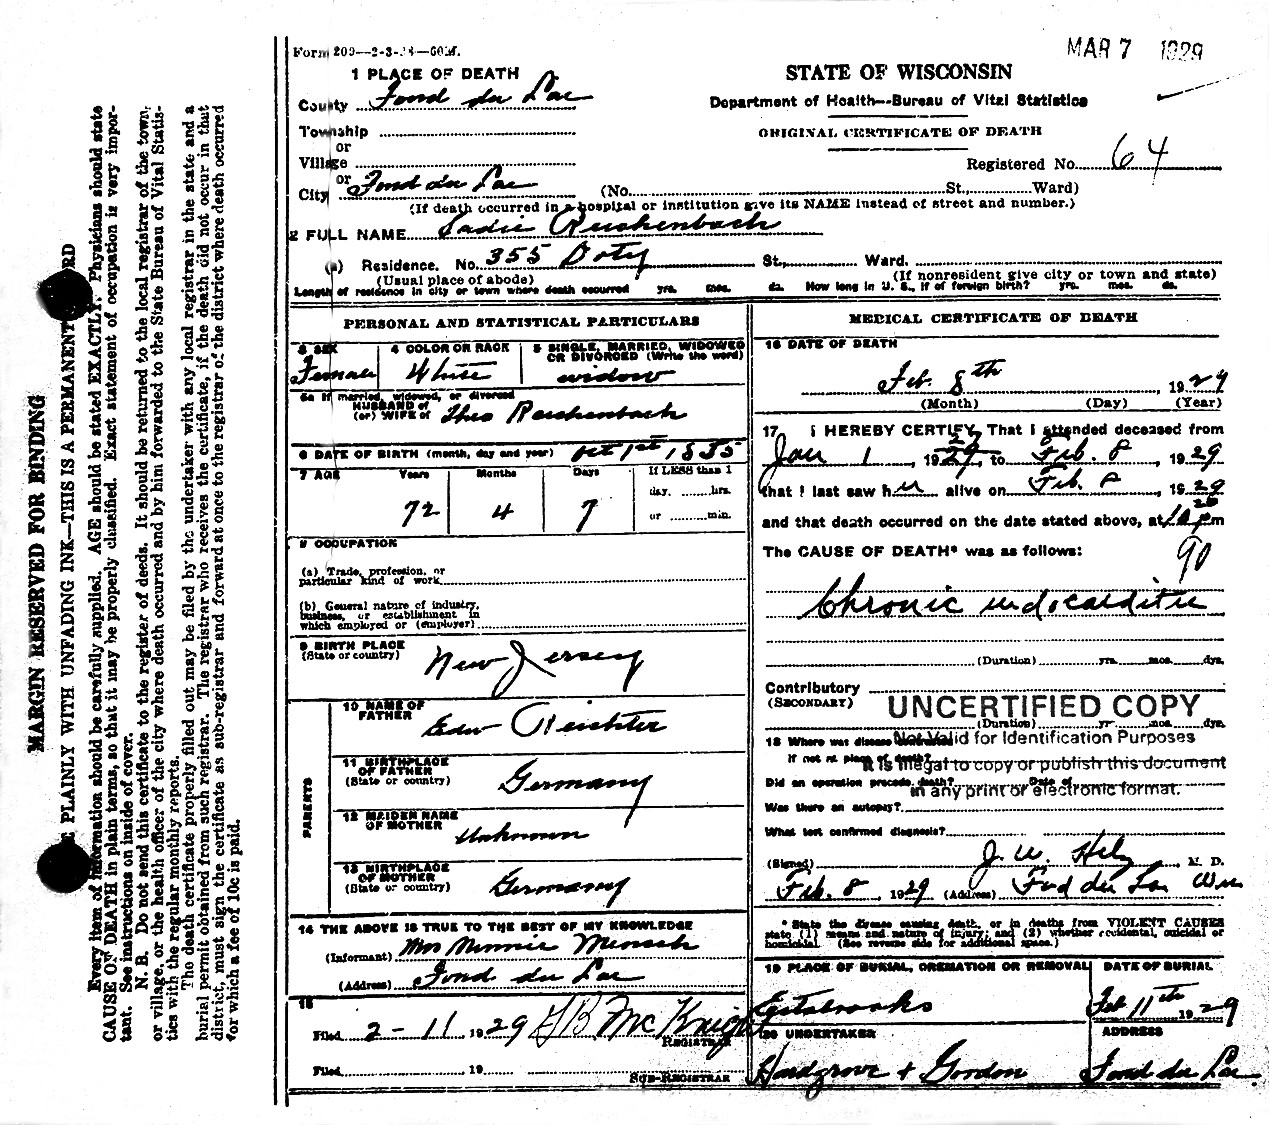 MARGIN RESERVED FOR BINDING
PLAINLY WITH UNFADING INK—THIS IS A PERMANENT RD
Every item of information should be carefully supplied. AGE should be stated EXACTLY. Physicians should state
CAUSE OF DEATH in plain terms, so that it may be properly classified. Exact statement of occupation is very impor-
tant. See instructions on inside of cover.
N. B. Do not send this certificate to the register of deeds. It should be returned to the local registrar of the town,
or village, or the health officer of the city where death occurred and by him forwarded to the State Bureau of Vital Statis-
tics with the regular monthly reports.
The death certificate properly filled out may be filed by the undertaker with any local registrar in the state and a
burial permit obtained from such registrar. The registrar who receives the certificate, if the death did not occur in that
district, must sign the certificate as sub-registrar and forward at once to the registrar of the district where death occurred
for which a fee of 10c is paid.
Form 209—2-3- —60M.
MAR 7 1929
1 PLACE OF DEATH
County Fond du Lac
Township
or
Village
or
City Fond du Lac
STATE OF WISCONSIN
Department of Health—Bureau of Vital Statistics
ORIGINAL CERTIFICATE OF DEATH
Registered No. 64
(No. St., Ward)
(If death occurred in a hospital or institution give its NAME instead of street and number.)
2 FULL NAME Sadie Reichenbach
(a) Residence. No. 355 Doty St., Ward.
(Usual place of abode) (If nonresident give city or town and state)
Length of residence in city or town where death occurred yrs. mos. ds. How long in U. S., if of foreign birth? yrs. mos. ds.
PERSONAL AND STATISTICAL PARTICULARS
3 SEX
Female
4 COLOR OR RACE
White
5 SINGLE, MARRIED, WIDOWED
OR DIVORCED (Write the word)
widow
5a If married, widowed, or divorced
HUSBAND of
(or) WIFE of Theo Reichenbach
6 DATE OF BIRTH (month, day and year) Oct 1st 1855
7 AGE Years Months Days If LESS than 1
day, hrs.
or min.
72 4 7
8 OCCUPATION
(a) Trade, profession, or
particular kind of work
(b) General nature of industry,
business, or establishment in
which employed or (employer)
9 BIRTH PLACE
(State or country) New Jersey
PARENTS
10 NAME OF
FATHER Edw Reichter
11 BIRTHPLACE
OF FATHER
(State or country) Germany
12 MAIDEN NAME
OF MOTHER Unknown
13 BIRTHPLACE
OF MOTHER
(State or country) Germany
14 THE ABOVE IS TRUE TO THE BEST OF MY KNOWLEDGE
(Informant) Mrs Minnie Mensch
(Address) Fond du Lac
15
Filed 2-11, 1929 McKnight
REGISTRAR
Filed , 19
SUB-REGISTRAR
MEDICAL CERTIFICATE OF DEATH
16 DATE OF DEATH
Feb. 8th, 1929
(Month) (Day) (Year)
17 I HEREBY CERTIFY, That I attended deceased from
Jan 1, 1929, to Feb. 8, 1929
that I last saw her alive on Feb. 8, 1929
and that death occurred on the date stated above, at m
The CAUSE OF DEATH* was as follows:
90
Chronic endocarditis
(Duration) yrs. mos. dys.
Contributory
(SECONDARY)
(Duration) yr mos. dys.
UNCERTIFIED COPY
Not Valid for Identification Purposes
It is illegal to copy or publish this document
in any print or electronic format.
18 Where was disease contracted
If not at place of death?
Did an operation precede death? Date of
Was there an autopsy?
What test confirmed diagnosis?
(Signed) J. W. Helz, M. D.
Feb. 8, 1929 (Address) Fond du Lac Wis
* State the disease causing death, or in deaths from VIOLENT CAUSES
state (1) means and nature of injury; and (2) whether accidental, suicidal or
homicidal. (See reverse side for additional space.)
19 PLACE OF BURIAL, CREMATION OR REMOVAL
Estabrooks
DATE OF BURIAL
Feb 11th 1929
20 UNDERTAKER
Hardgrove + Gordon
ADDRESS
Fond du Lac